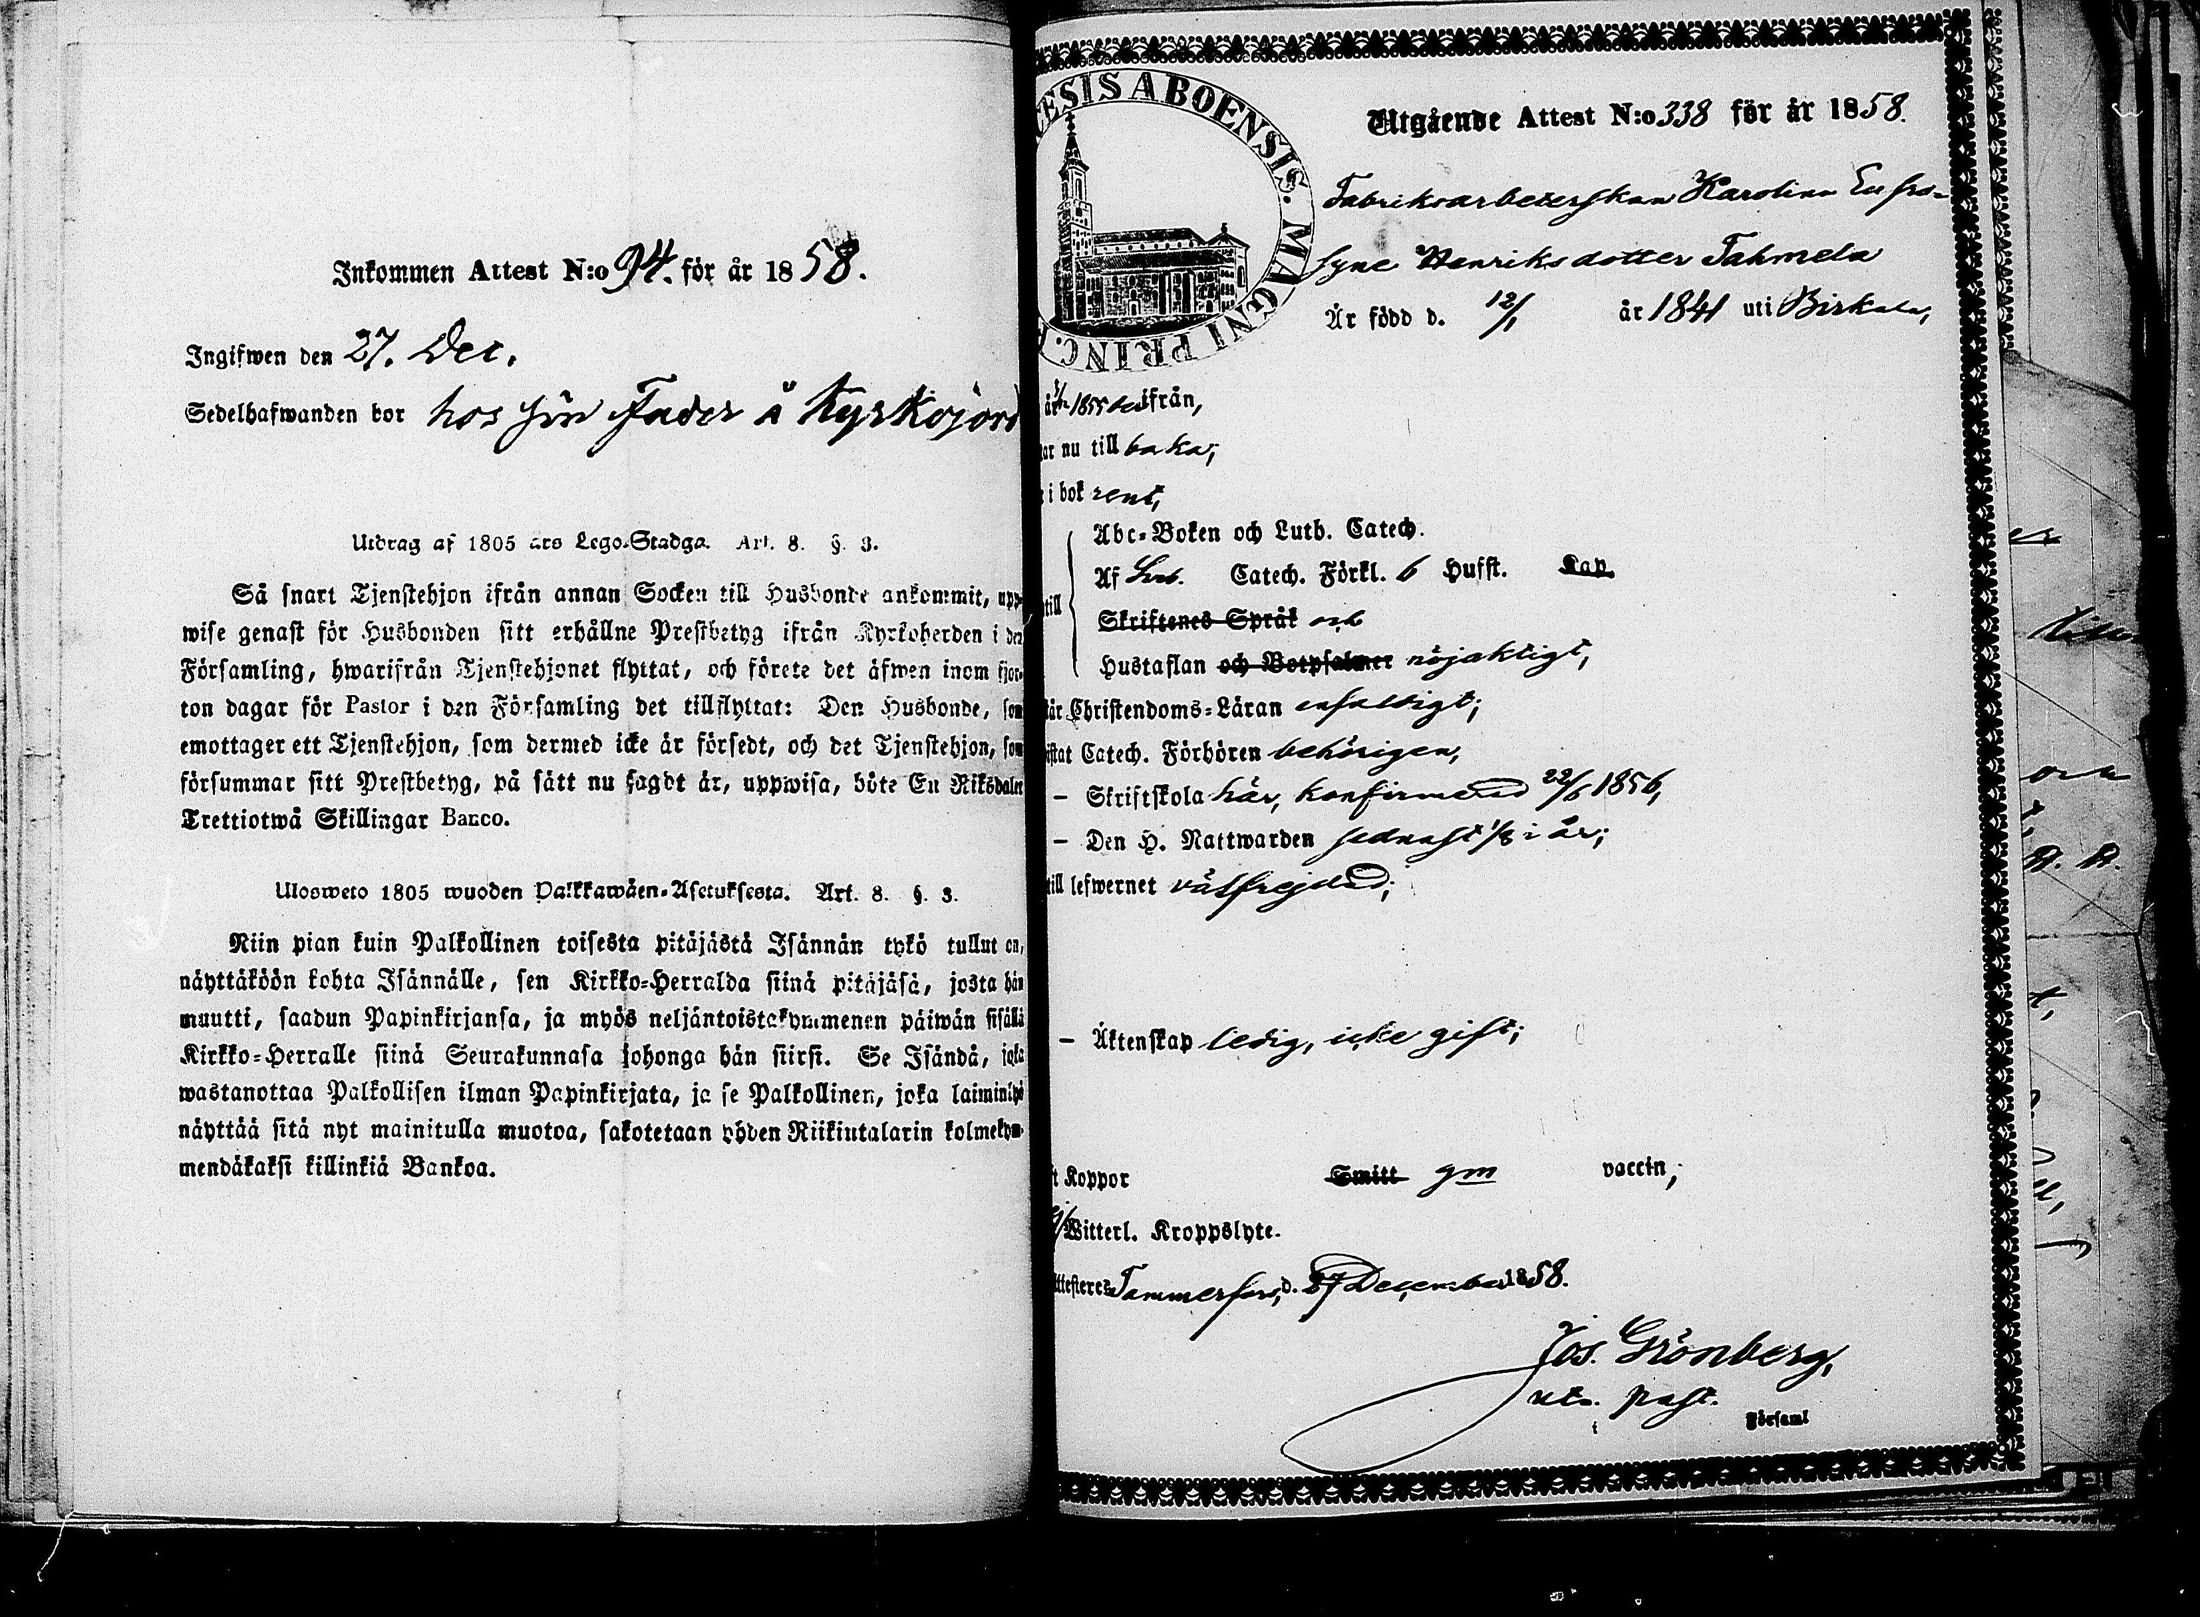 Inkommen Attest N:o 94. för år 1858.
Ingifwen den 27. Dec.
Sedelhafwanden bor hos sin Fader å Kyrkojord
Utdrag af 1805 års Lego-Stadga. Art. 8. §. 3.
Så snart Tjenstehjon ifrån annan Socken till Husbonde ankommit, upp-
wise genast för Husbonden sitt erhållne Prestbetyg ifrån Kyrkoherden i den
Församling, hwarifrån Tjenstehjonet flyttat, och förete det äfwen inom fjor-
ton dagar för Pastor i den Församling det tillflyttat: Den Husbonde, som
emottager ett Tjenstehjon, som dermed icke är försedt, och det Tjenstehjon, som
försummar sitt Prestbetyg, på sätt nu sagdt är, uppwisa, böte En Riksdaler
Trettiotwå Skillingar Banco.
Ulosweto 1805 wuoden Palkkawäen-Asetuksesta. Art. 8. §. 3.
Niin pian kuin Palkollinen toisesta pitäjästä Isännän tykö tullut on,
näyttäköön kohta Isännälle, sen Kirkko-Herralda siinä pitäjäsä, josta hän
muutti, saadun Papinkirjansa, ja myös neljäntoistakymmenen päiwän sisällä
Kirkko-Herralle siinä Seurakunnasa johonga hän siirsi. Se Isändä, joka
wastanottaa Palkollisen ilman Papinkirjata, ja se Palkollinen, joka laiminlyö
näyttää sitä nyt mainitulla muotoa, sakotetaan yhden Riikintalarin kolmekym-
mendäkaksi killinkiä Bankoa.
CESIS ABOENSIS. MAGNI PRINC.
Utgående Attest N:o 338 för år 1858.
Fabriksarbeterskan Karolina Eufro-
syne Henriksdotter Tahmela
Är född d. 12/1 år 1841 uti Birkala,
år 1855 ifrån,
ar nu till baka;
i bok rent,
Abc-Boken och Luth. Catech.
Af Catech. Förkl. 6 Hufst. Kap.
till
Skriftenes Språk och
Hustaflan och Botpsalmer nöjaktigt,
är Christendoms-Läran enfaldigt;
istat Catech. Förhören behörigen,
– Skriftskola här, konfirmerad 22/6 1856,
– Den H. Nattwarden sednast 1/8 i år;
till lefwernet välfrejdad;
– Äktenskap ledig, icke gift;
t Koppor Smitt gm vaccin;
Witterl. Kroppslyte.
ttesteres Tammerfors, d. 27 December 1858.
Jos. Grönberg,
past.
Församl